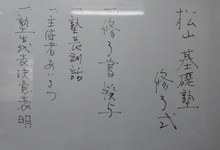 松山 基礎塾
修了式
一修了書授与
一塾長訓話
一主催者あいさつ
一塾生代表決意表明